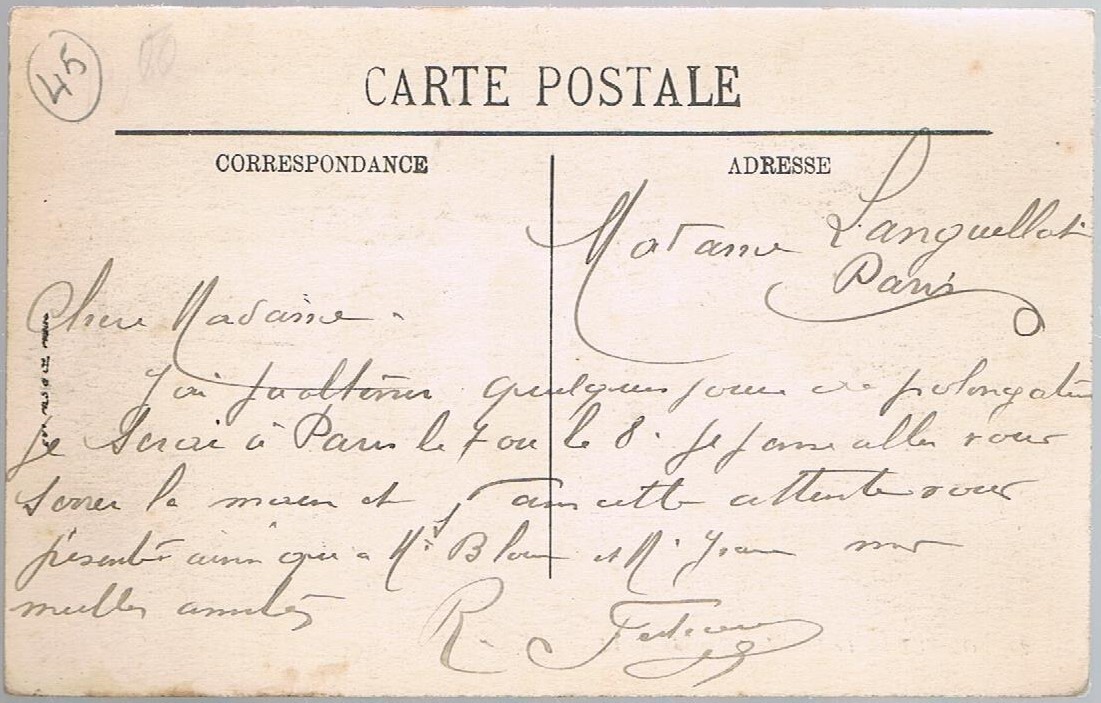 45
CARTE POSTALE
CORRESPONDANCE
ADRESSE
Madame Languellot
Paris
Chere Madame.
J'ai quelques jours de prolongation
je serai à Paris le 7 ou le 8. Je pense aller vous
serrer la main et dans cette attente vous
présente ainsi que a Mrs Bloum et Mr Jean mes
meilles amitiés
R.